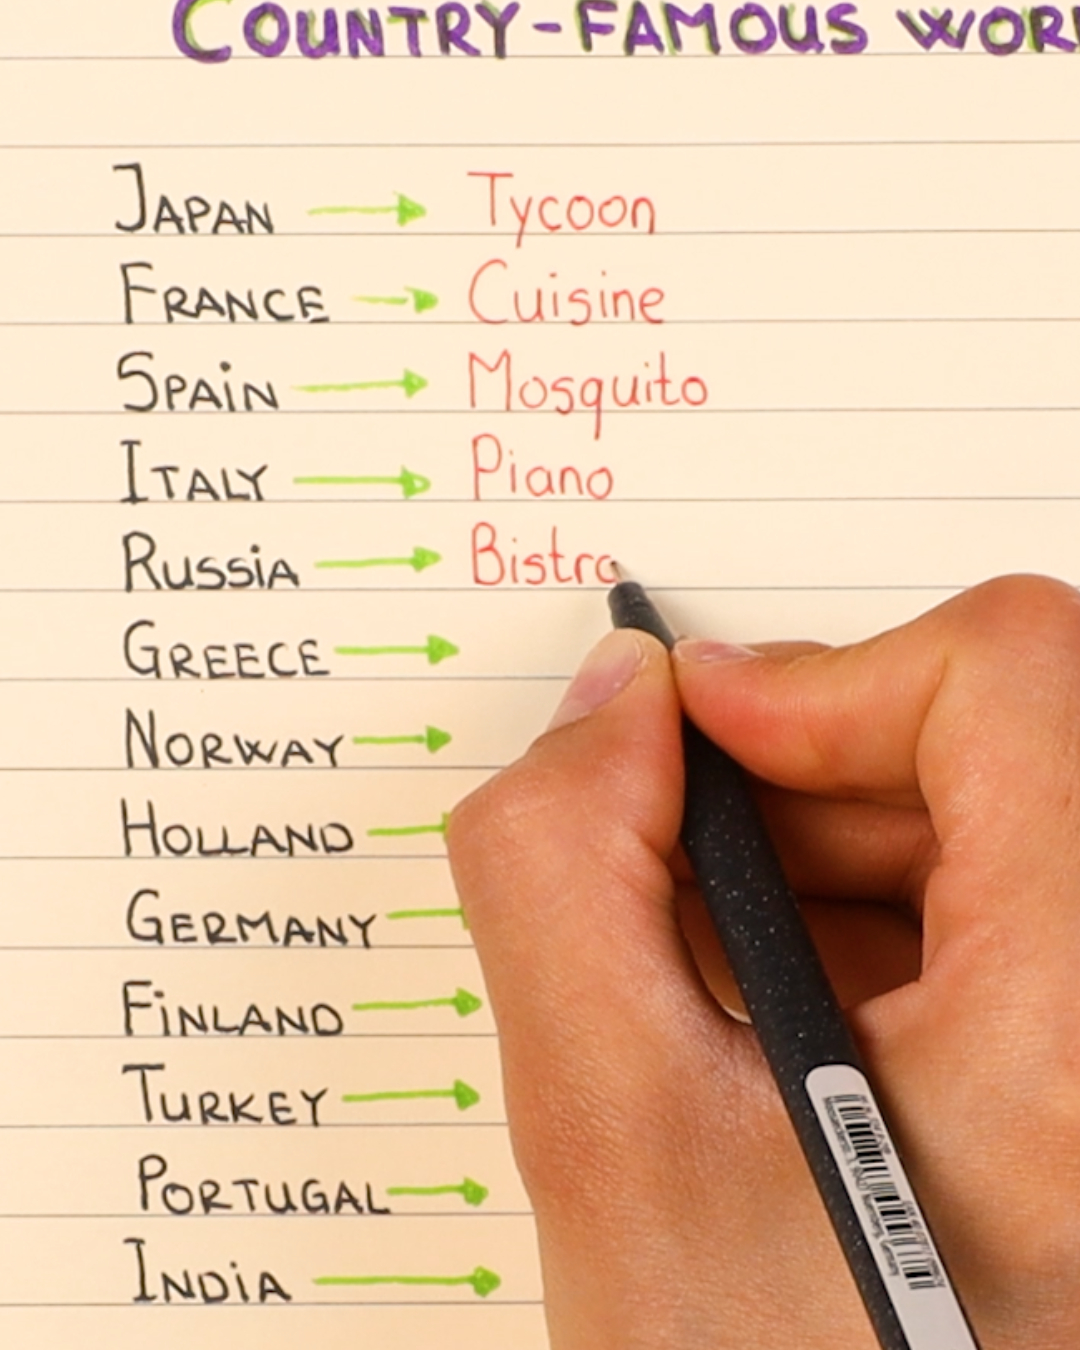 COUNTRY-FAMOUS
JAPAN → Tycoon
FRANCE → Cuisine
SPAIN → Mosquito
ITALY → Piano
RUSSIA → Bistro
GREECE →
NORWAY →
HOLLAND
GERMANY
FINLAND →
TURKEY →
PORTUGAL →
INDIA →